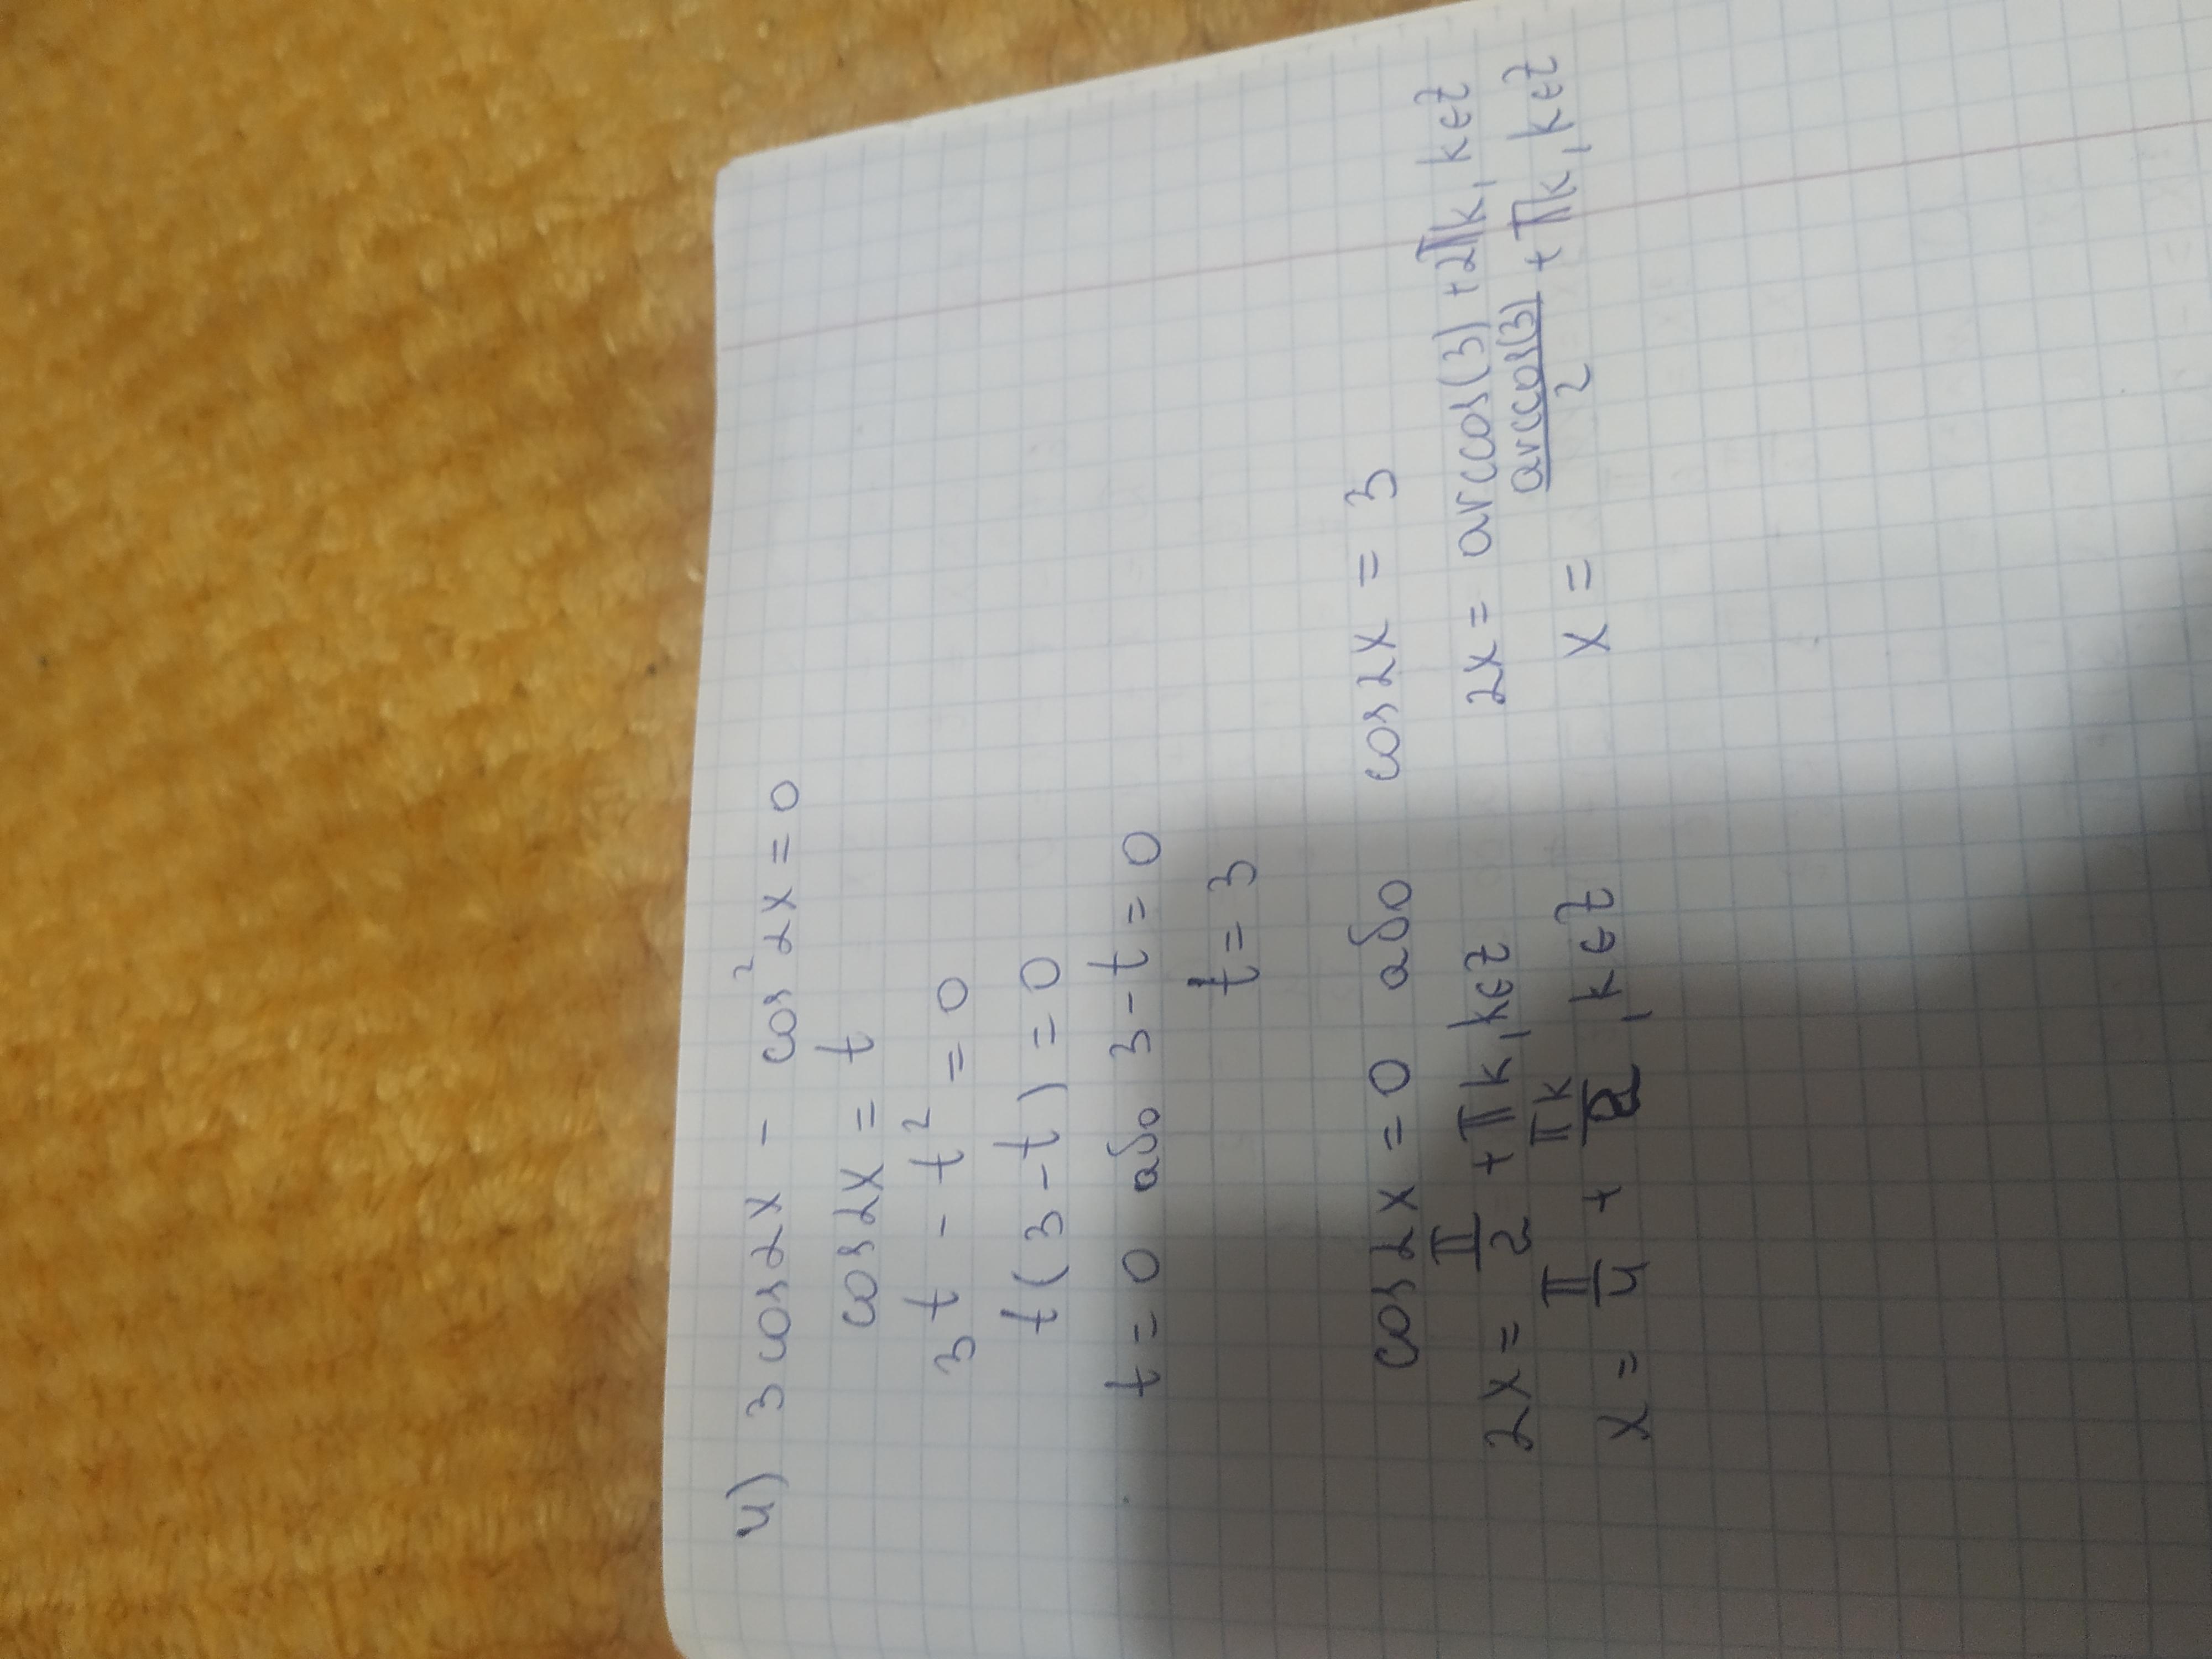 4) 3 cos2x - cos²2x = 0
cos2x = t
3t - t² = 0
t(3-t) = 0
t = 0 або 3-t = 0
t = 3
cos2x = 0 або cos2x = 3
2x = π/2 + πk, k∈Z 2x = arccos(3) + 2πk, k∈Z
x = π/4 + πk/2, k∈Z x = arccos(3)/2 + πk, k∈Z